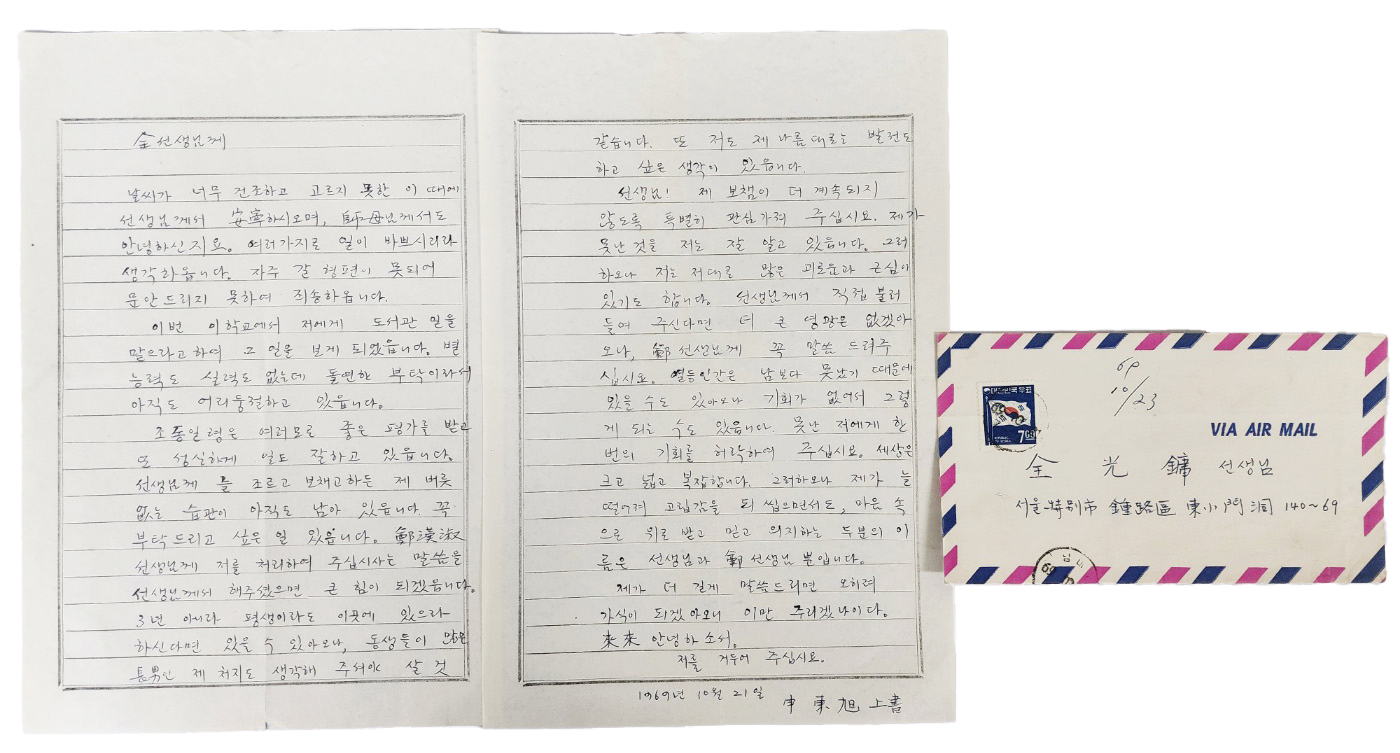 全 선생님께
날씨가 너무 건조하고 고르지 못한 이 때에
선생님께서 安寧하시오며, 師母님께서도
안녕하신지요. 여러가지로 일이 바쁘시리라
생각하옵니다. 자주 갈 형편이 못되어
문안드리지 못하여 죄송하옵니다.
이번 이학교에서 저에게 도서관 일을
맡으라고하여 그 일을 보게 되었읍니다. 별
능력도 실력도 없는데 돌연한 부탁이라서
아직도 어리둥절하고 있읍니다.
조동일형은 여러모로 좋은 평가를 받고
또 성실하게 일도 잘하고 있읍니다.
선생님께 를 조르고 보채고하든 제 버릇
없는 습관이 아직도 남아 있읍니다. 꼭
부탁드리고 싶은 일 있읍니다. 鄭漢淑
선생님께 저를 처리하여 주십시사는 말씀을
선생님께서 해주셨으면 큰 힘이 되겠읍니다.
3년 아니라 평생이라도 이곳에 있으라
하신다면 있을 수 있아오나, 동생들이 많은
長男인 제 처지도 생각해 주셔야 살 것
같습니다. 또 저도 제 나름대로는 발전도
하고 싶은 생각이 있읍니다.
선생님! 제 보챔이 더 계속되지
않도록 특별히 관심가져 주십시요. 제가
못난것을 저는 잘 알고 있읍니다. 그러
하오나 저는 저대로 많은 괴로움과 근심이
있기도 합니다. 선생님께서 직접 불러
들여 주신다면 더 큰 영광은 없겠아
오나, 鄭선생님께 꼭 말씀 드려주
십시요. 열등인간은 남보다 못났기 때문에
있을 수도 있아오나 기회가 없어서 그렇
게 되는 수도 있읍니다. 못난 저에게 한
번의 기회를 허락하여 주십시요. 세상은
크고 넓고 복잡합니다. 그러하오나 제가 늘
떨어져 고립감을 되씹으면서도, 마음 속
으로 위로 받고 믿고 의지하는 두분의 이
름은 선생님과 鄭선생님 뿐입니다.
제가 더 길게 말씀드리면 오히려
가식이 되겠아오니 이만 주리겠나이다.
來來 안녕하소서.
저를 거두어 주십시요.
1969년 10월 21일
申東旭 上書
대한민국우표
7.00
69
10/23
VIA AIR MAIL
全光鏞 선생님
서울特別市 鍾路區 東小門洞 140~69